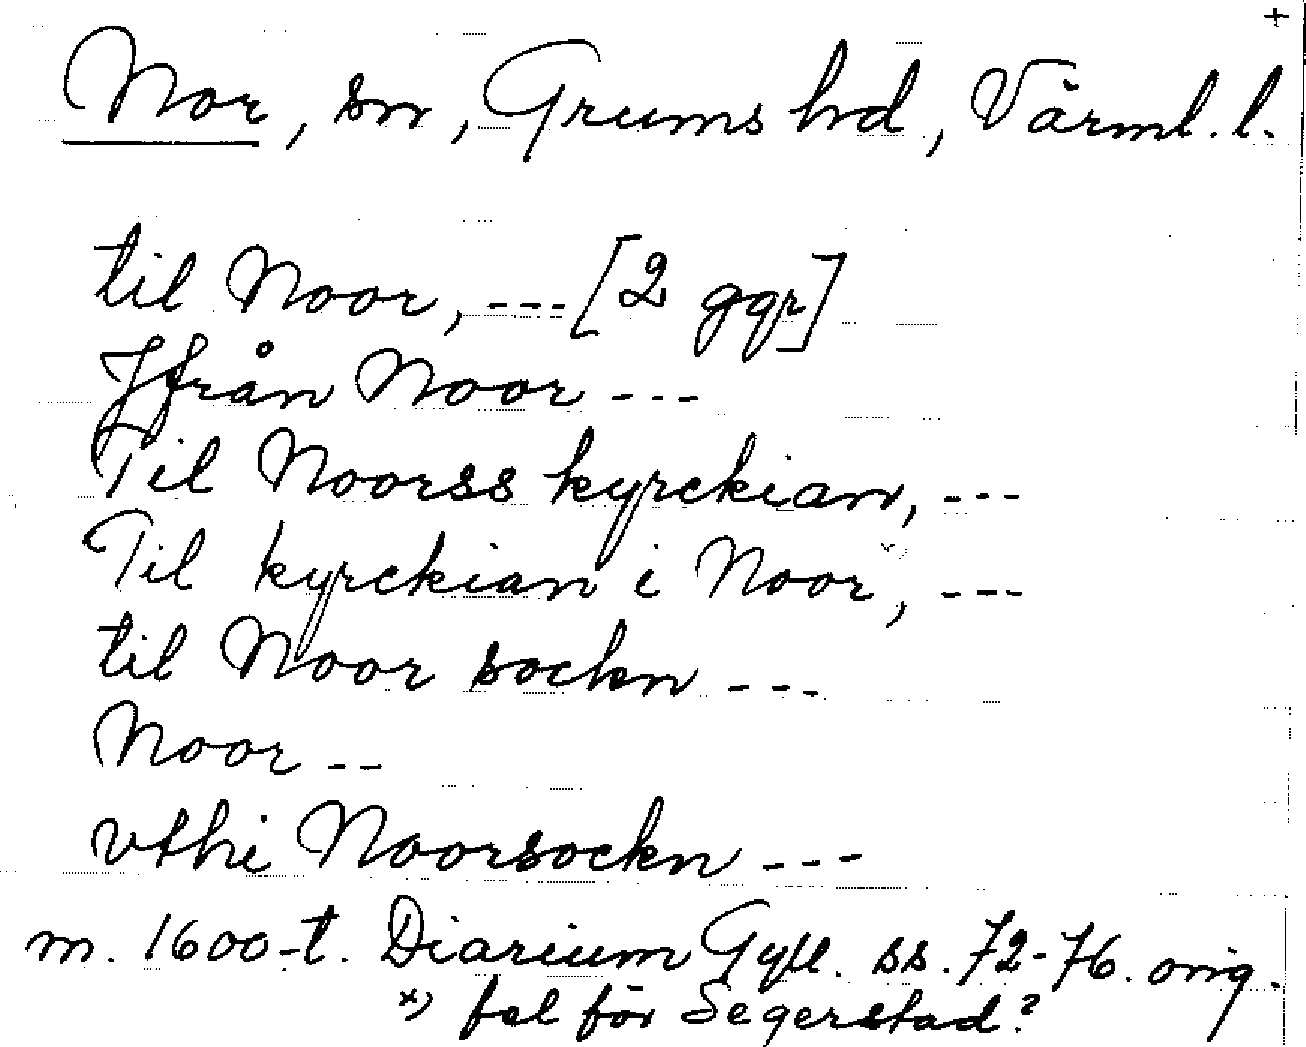 +
Nor, sn, Grums hd, Värml. l.
til Noor, --- [2 ggr]
Jfrån Noor ---
Til Noorss kyrckian, ---
Til kyrckian i Noor x), ---
til Noor sockn ---
Noor --
vthi Noorsockn ---
m. 1600-t. Diarium Gyll. ss. 72-76. orig.
x) fel för Segerstad?